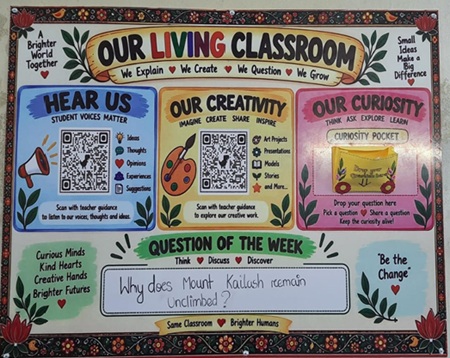 A
Brighter
World
Together
OUR LIVING CLASSROOM
We Explain ♥ We Create ♥ We Question ♥ We Grow
Small
Ideas
Make a
Big
Difference
HEAR US
STUDENT VOICES MATTER
Ideas
Thoughts
Opinions
Experiences
Suggestions
Scan with teacher guidance
to listen to our voices, thoughts and ideas.
OUR CREATIVITY
IMAGINE CREATE SHARE INSPIRE
Art Projects
Presentations
Models
Stories
and More...
Scan with teacher guidance
to explore our creative work.
OUR CURIOSITY
THINK ASK EXPLORE LEARN
CURIOSITY POCKET
Drop your question here
Pick a question ♥ Share a question
Keep the curiosity alive!
Curious Minds
Kind Hearts
Creative Hands
Brighter Futures
QUESTION OF THE WEEK
Think ♥ Discuss ♥ Discover
Why does Mount Kailash remain
Unclimbed?
"Be the
Change"
Same Classroom ♥ Brighter Humans